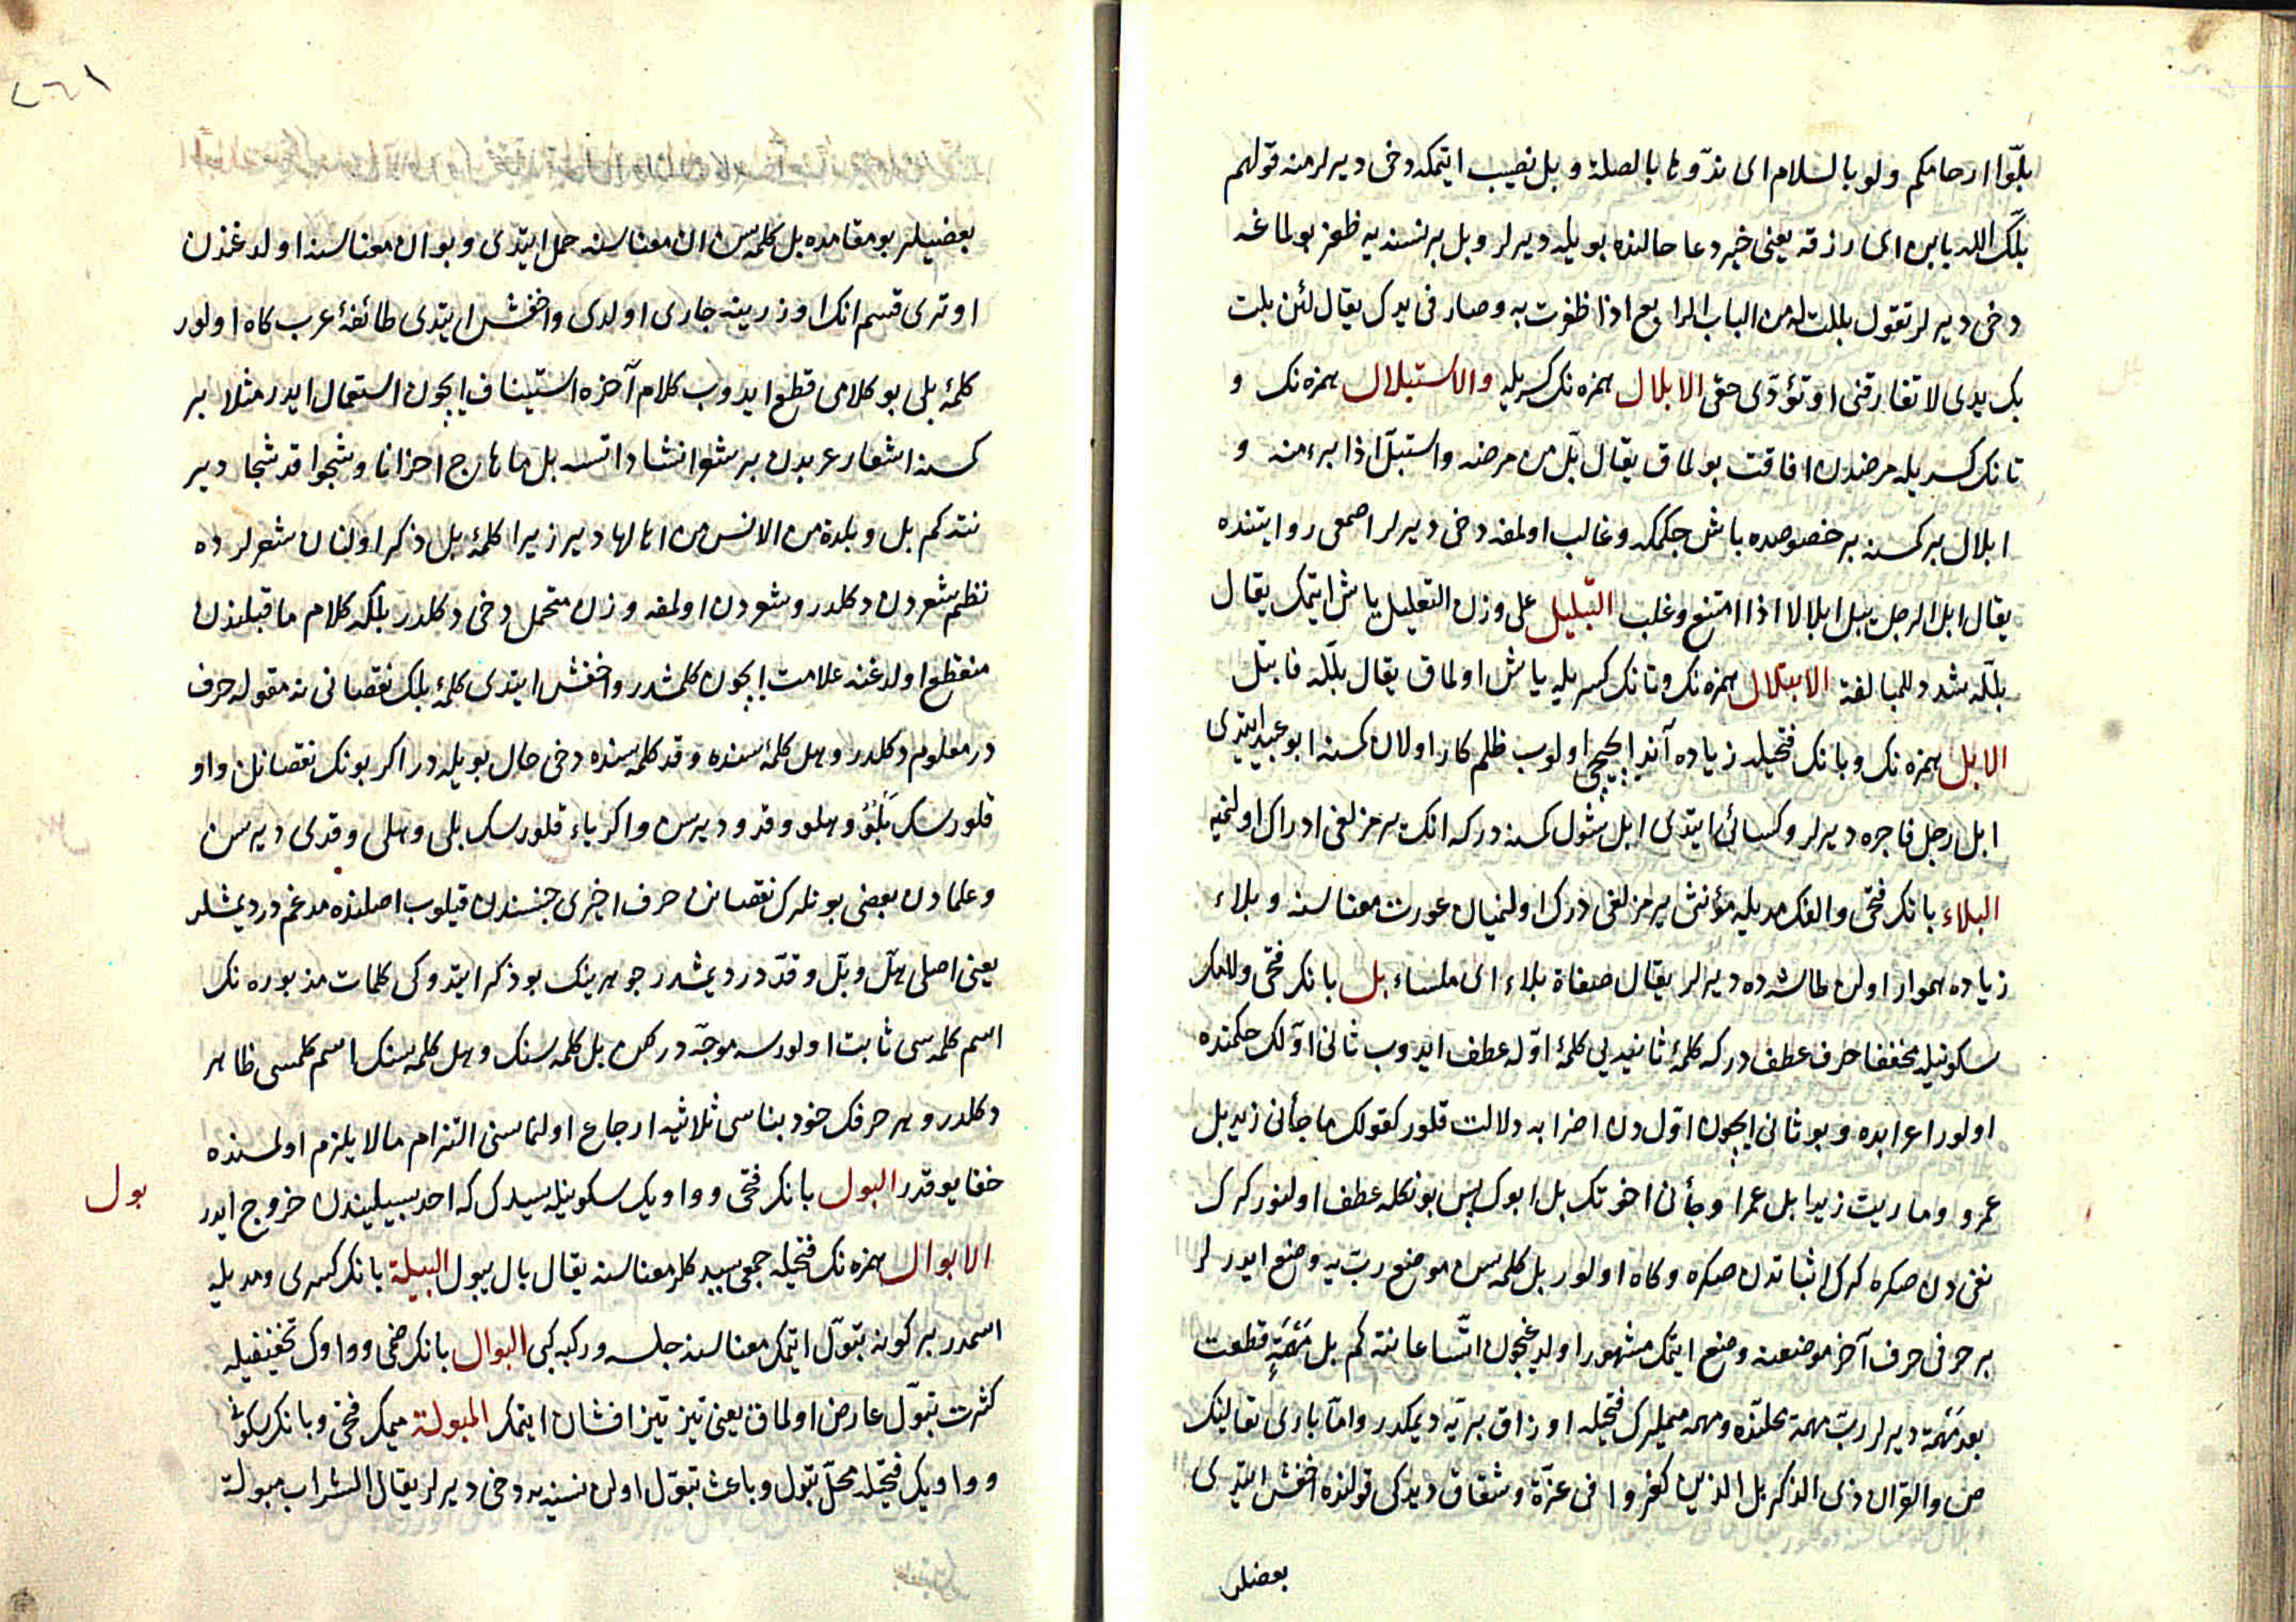 بلّوا ارحامكم ولو بالسلام اى ندّوها بالصلة و بل نصيب ايتمكه دخى ديرلر منه قولهم
بلّك الله بابن اى رزقه يعنى خير دعا حالنده بويله ديرلر و بل بر نسنه يه ظفر بولمغه
دخى ديرلر تقول بللت به من الباب الرابع اذا ظفرت به وصار فى يدك يقال لئن بلت
بك يدى لا تفارقنى او تؤدّى حقى الابلال همزه نك كسريله والاستبلال همزه نك و
تانك كسريله مرضدن افاقت بولماق يقال بلّ من مرضه واستبلّ اذا برء منه و
ابلال بر كمسنه بر خصوصده باش چكمكه و غالب اولمغه دخى ديرلر اصمعى روايتنده
يقال ابل الرجل يبل ابلالا اذا امتنع وغلب التبليل على وزن التعليل ياش ايتمك يقال
بلّله شدد للمبالغة الابتلال همزه نك و تانك كسريله ياش اولماق يقال بلّله فابتل
الابل همزه نك و بانك فتحيله زياده آند ايچيجى اولوب ظلم كار اولان كمسنه ابو عبيد ايتدى
ابل رجل فاجره ديرلر و كسائى ايتدى ابل شول كمسنه دركه انك هرمزلغى ادراك اولنميه
البلاء بانك فتحى و الفك مديله مؤنثى هرمزلغى درك اولنميان عورت معناسنه و بلاء
زياده هموار اولن طاشه ده ديرلر يقال صفاة بلاء اى ملساء بل بانك فتحى و لامك
سكونيله مخففا حرف عطف دركه كلمۀ ثانيه يى كلمۀ اوّله عطف ايدوب ثانى اوّلك حكمنده
اولور اعرابده و بو ثانى ايچون اوّل دن اضرابه دلالت قلور كقولك ما جأنى زيد بل
عمرو وما رايت زيدا بل عمرا وجأنى اخوتك بل ابوك پس بونكله عطف اولنور كرك
نفى دن صكره كرك اثباتدن صكره و كاه اولور بل كلمه سن موضع ربّ يه وضع ايدرلر
بر حرفى حرف آخر موضعنه وضع ايتمك مشهور اولديغيچون اتّساعا نته كم بل مَهْمَهٍ قطعت
بعد مَهْمَه ديرلر ربّ مهمه محلنده و مهمه ميملرك فتحيله اوزاق بريّه ديمكدر و امّا بارى تعالينك
ص والقرآن ذى الذكر بل الذين كفروا فى عزّة وشقاق ديدكى قولنده اخفش ايتدى
بعضيلر
بعضيلر بو مقامده بل كلمه سن ان معناسنه حمل ايتدى و بو ان معناسنه اولدغندن
اوترى قسم انك اوزرينه جارى اولدى و اخفش ايتدى طائفۀ عرب كاه اولور
كلمۀ بلى بو كلامى قطع ايدوب كلام آخره استيناف ايچون استعمال ايدر مثلا بر
كمسنه اشعار عربدن بر شعر انشاد اتسه بل ما هاج احزانا وشجوا قد شجا دير
نته كم بل وبلدة من الانس من اهالها دير زيرا كلمۀ بل ذكر اولنان شعرلرده
نظم شعردن دكلدر و شعردن اولمغه وزن متحمل دخى دكلدر بلكه كلام ما قبلندن
منقطع اولدغنه علامت ايچون كلمشدر و اخفش ايتدى كلمۀ بلك نقصانى نه مقوله حرف
در معلوم دكلدر و هل كلمۀ سنده و قد كلمه سنده دخى حال بويله در اكر بونك نقصانن واو
قلورسك بَلْوٌ و هلو و قدو ديرسن و اكر ياء قلورسك بلى و هلى و قدى ديرسن
و علمادن بعضى بونلرك نقصانن حرف اخيرى جنسندن قيلوب اصلنده مدغم در ديمشلر
يعنى اصلى هلّ و بلّ و قدّ در ديمشدر جوهرينك بو ذكر ايتدوكى كلمات مذبوره نك
اسم كلمه سى ثابت اولورسه موجّه در لكن بل كلمه سنك و هل كلمه سنك اسم كلمسى ظاهر
دكلدر و هر حرفك خود بناسى ثلاثيه ارجاع اولنماسنى التزام مالا يلزم اولمسنده
خفا يوقدر البول بانك فتحى و واويك سكونيله سيدك كه احد سبيليندن خروج ايدر
بول
الابوال همزه نك فتحيله جمعى سيدكلر معناسنه يقال بال يبول البيلة بانك كسرى و مديله
اسمدر بر كونه تبوّل ايتمك معناسنه جلسه و ركبه كبى البوال بانك ضمى و واوك تخفيفيله
كثرت تبوّل عارض اولماق يعنى تيز تيز افشان ايتمك المبولة ميمك فتحى و بانك سكونى
و واويك فتحيله محلّ تبول و باعث تبوّل اولن نسنه يه دخى ديرلر يقال الشراب مبولة